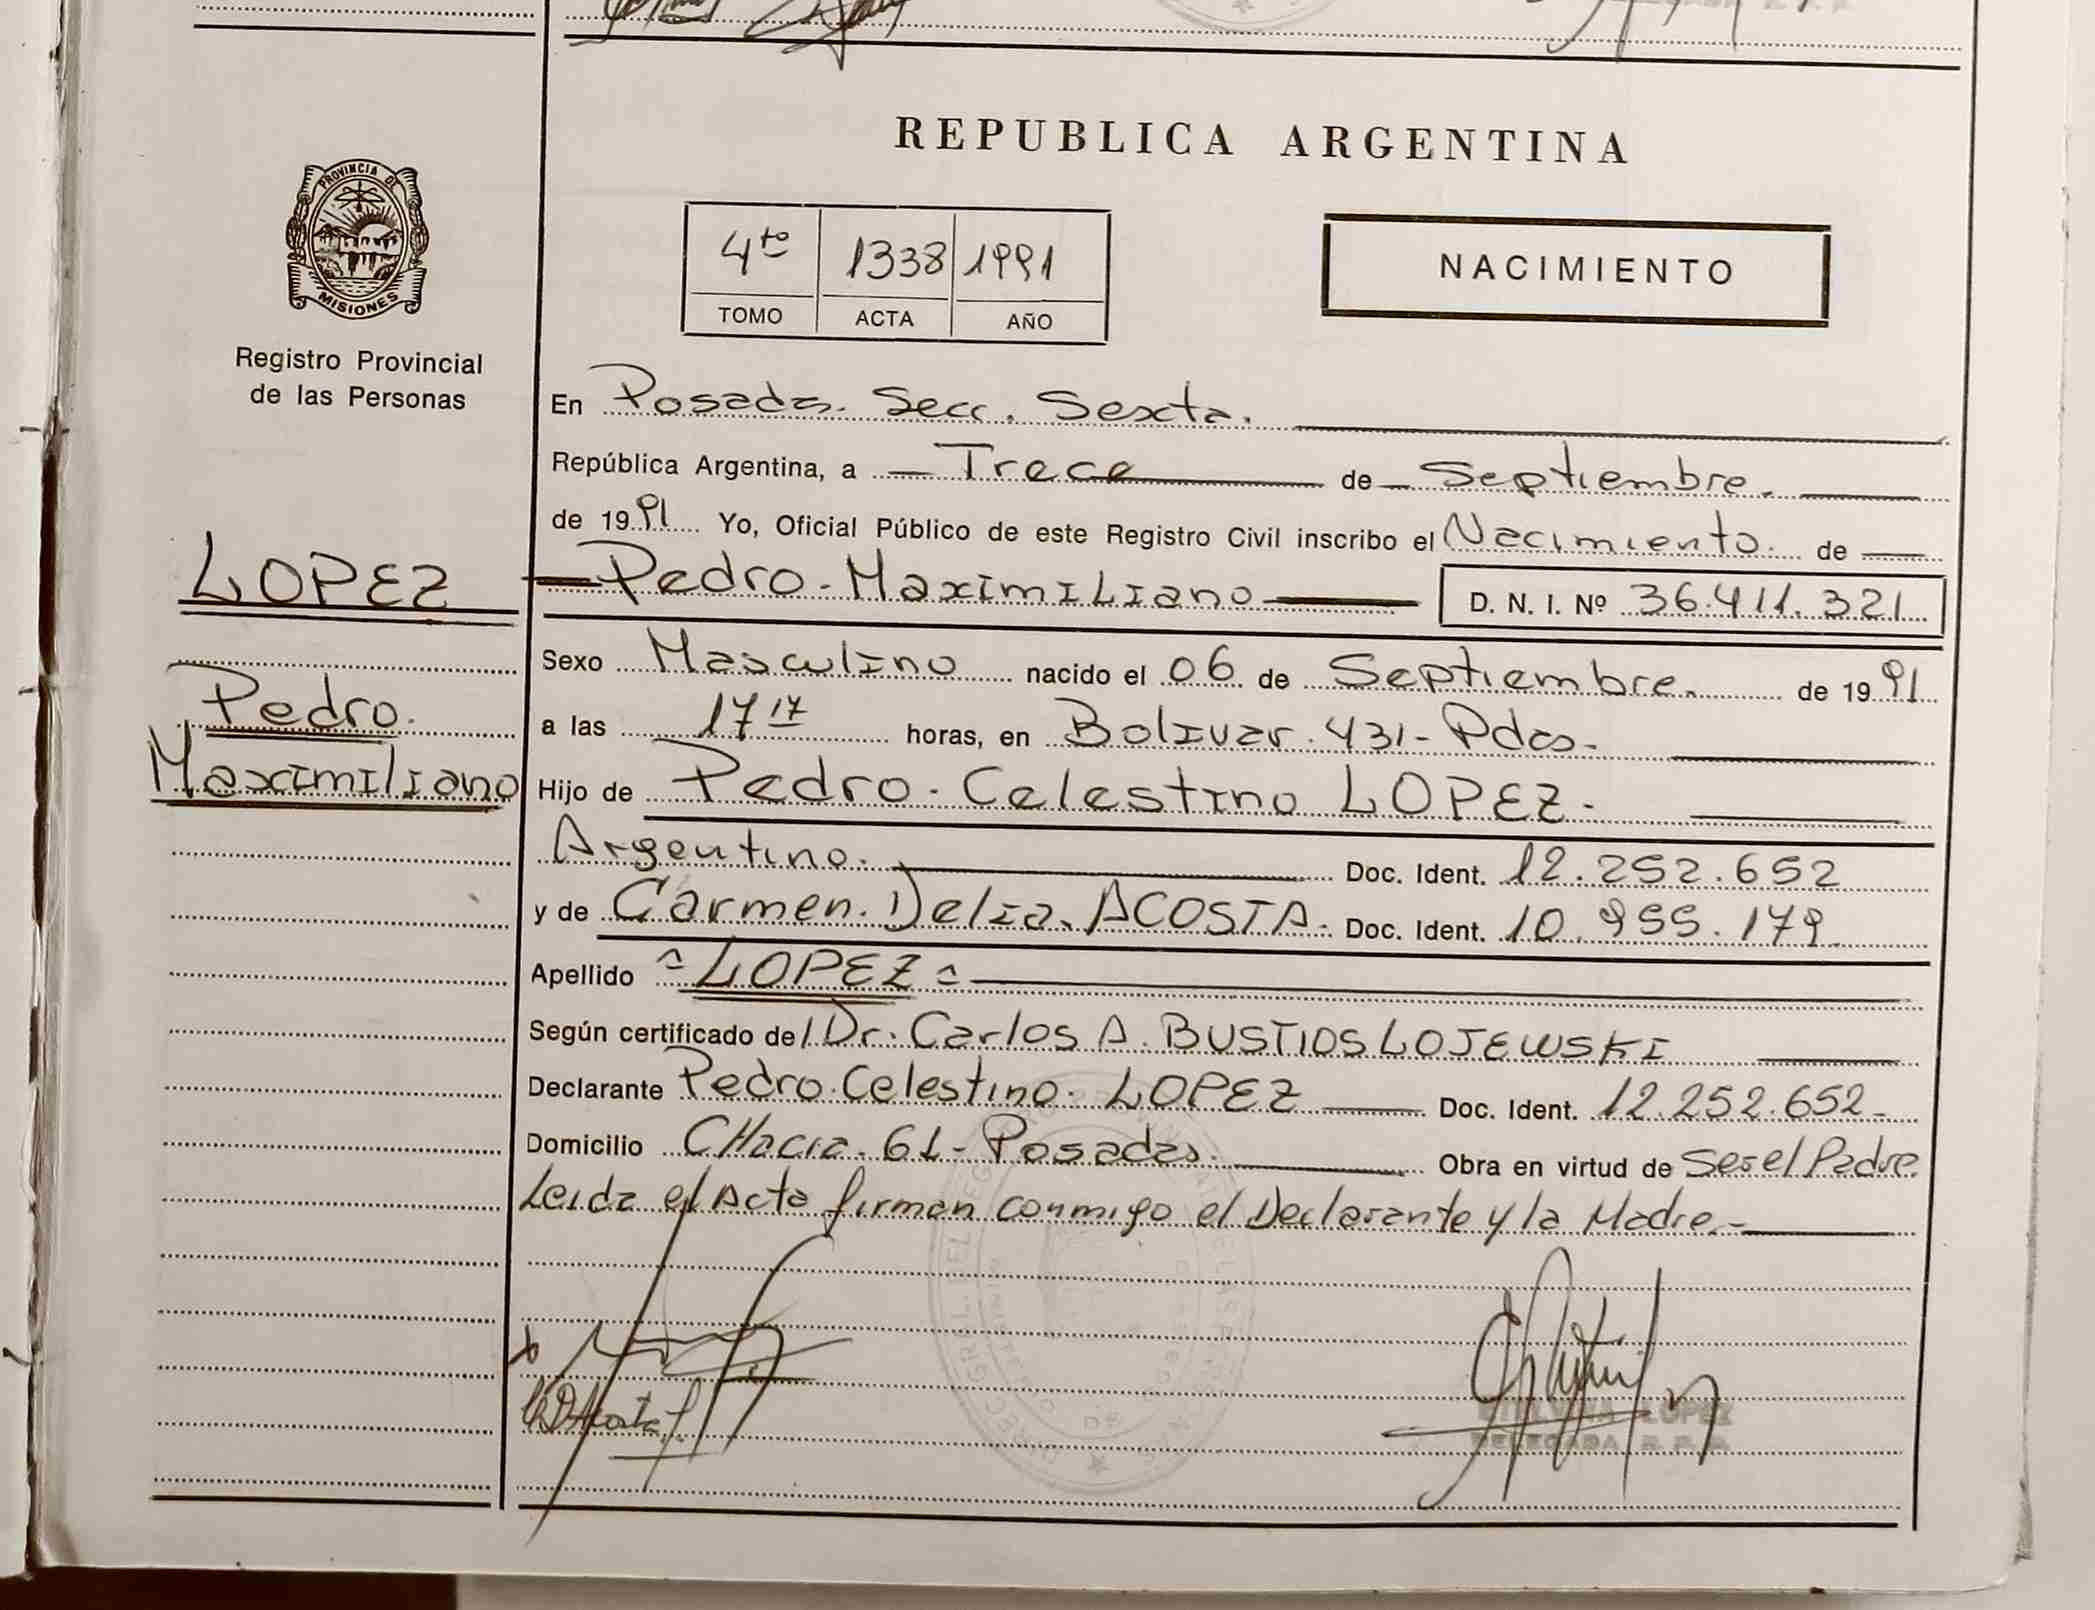 REPUBLICA ARGENTINA
PROVINCIA DE
MISIONES
Registro Provincial
de las Personas
4to 1338 1991
TOMO ACTA AÑO
NACIMIENTO
En Posadas. Secc. Sexta.
República Argentina, a Trece de Septiembre.
de 1991 Yo, Oficial Público de este Registro Civil inscribo el Nacimiento. de
LOPEZ
Pedro. Maximiliano
Pedro - Maximiliano D. N. I. Nº 36.411.321
Sexo Masculino nacido el 06 de Septiembre. de 1991
a las 17 17 horas, en Bolivar. 431 - Pdas.
Hijo de Pedro. Celestino LOPEZ.
Argentino. Doc. Ident. 12.252.652
y de Carmen. Delia. ACOSTA. Doc. Ident. 10.955.179.
Apellido = LOPEZ =
Según certificado del Dr. Carlos A. BUSTIOS LOJEWSKI
Declarante Pedro. Celestino. LOPEZ Doc. Ident. 12.252.652
Domicilio CHacra. 61 - Posadas. Obra en virtud de Ser el Padre.
Leida el Acta firman conmigo el Declarante y la Madre.-
LOPEZ
DELEGADA R. P. P.